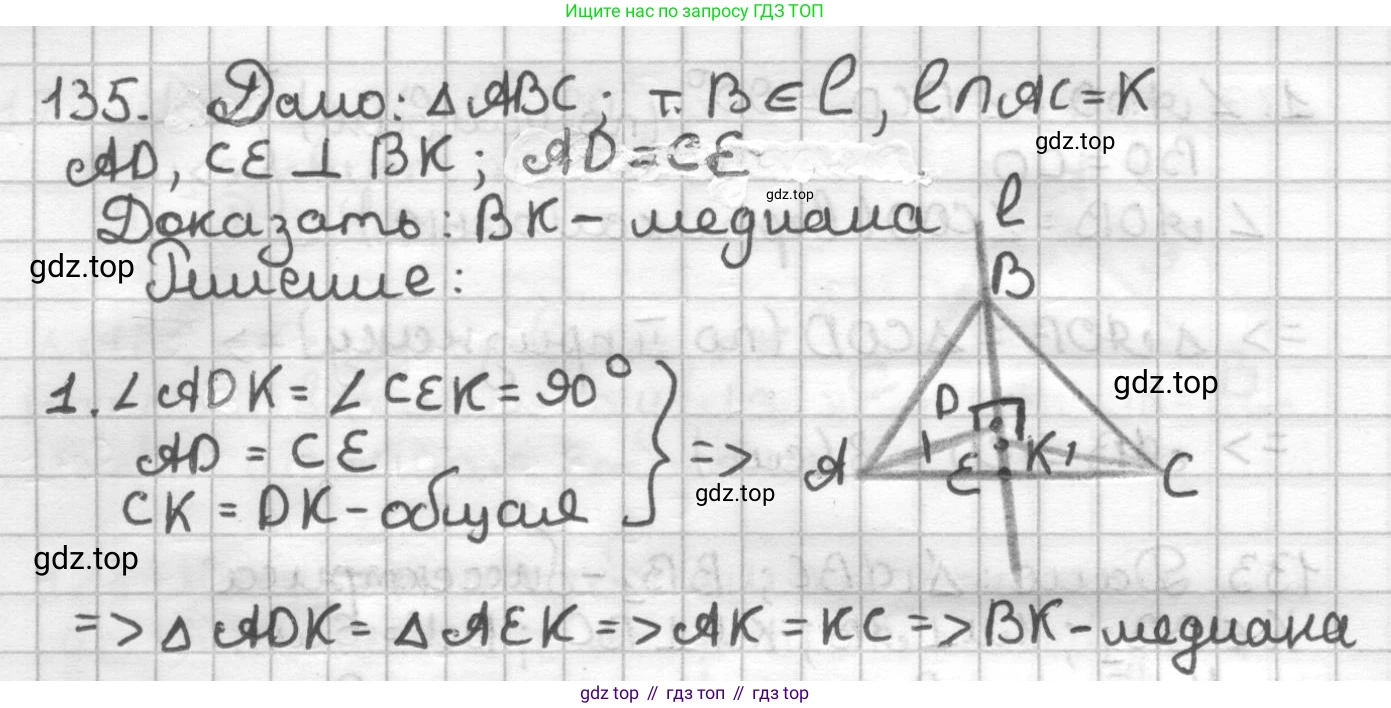 Ищите нас по запросу ГДЗ ТОП
135. Дано: △ABC; т. B ∈ l, l∩AC=K
gdz.top
AD, CE ⊥ BK; AD=CE
gdz.top
Доказать: BK - медиана
l
gdz.top
Решение:
B
1. ∠ADK = ∠CEK = 90°
gdz.top
D
AD = CE
=>
A
E
K
C
gdz.top
CK = DK - общая
gdz.top
=> △ADK = △AEK => AK = KC => BK - медиана
gdz top // гдз топ // гдз top